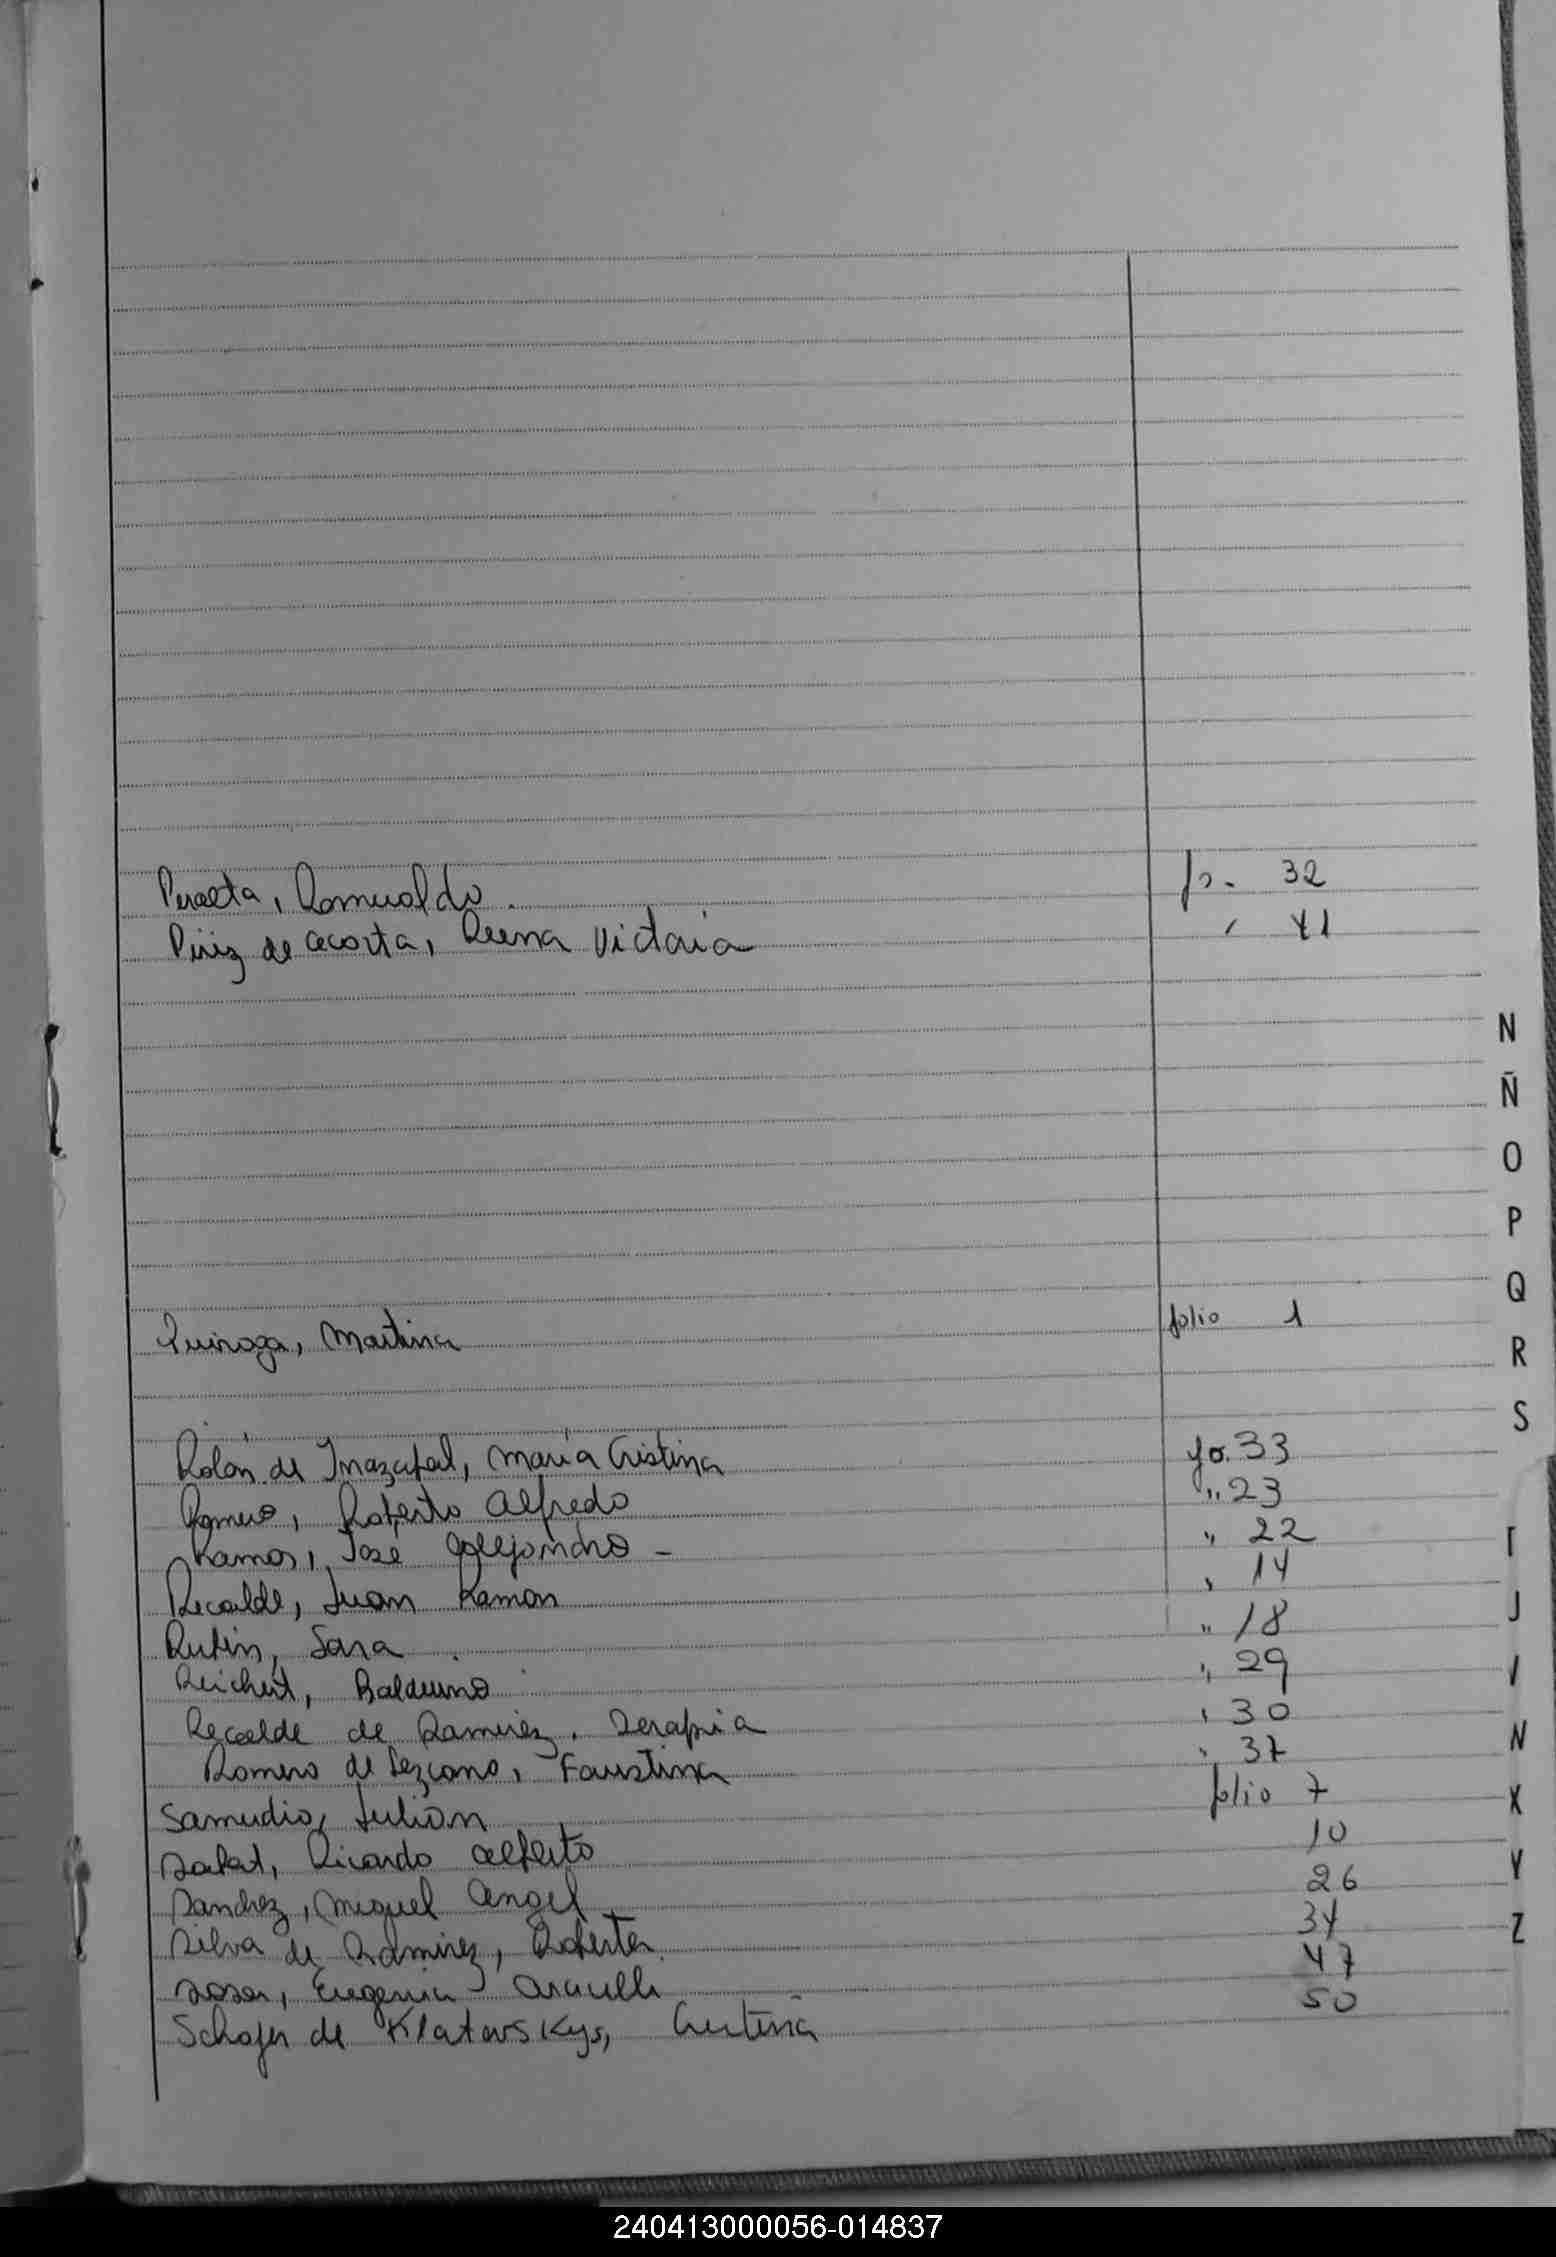 Peralta, Romualdo. fo. 32
Piriz de Acosta, Reena Victoria " 41
N
Ñ
O
P
Q
Quiroga, Martina folio 1
R
S
Rolón de Imazabal, María Cristina fo. 33
Romero, Roberto Alfredo " 23
Ramos, José Alejandro - " 22
Recalde, Juan Ramon " 14
Rubin, Sara " 18
Reichert, Balduino " 29
Recalde de Ramirez, Serapia " 30
Romero de Lezcano, Faustina " 37
Samudio, Julian folio 7
Ricardo Alberto 10
Sanchez, Miguel Angel 26
Silva de Ramirez, Roberta 34
Sosa, Eugenia 47
Schafer de 50
J
N
X
Y
Z
240413000056-014837